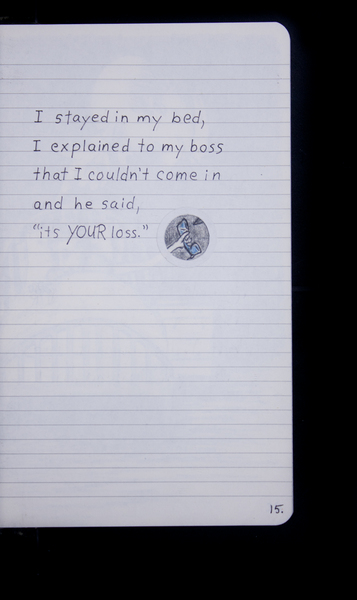 I stayed in my bed,
I explained to my boss
that I couldn't come in
and he said,
"its YOUR loss."
15.